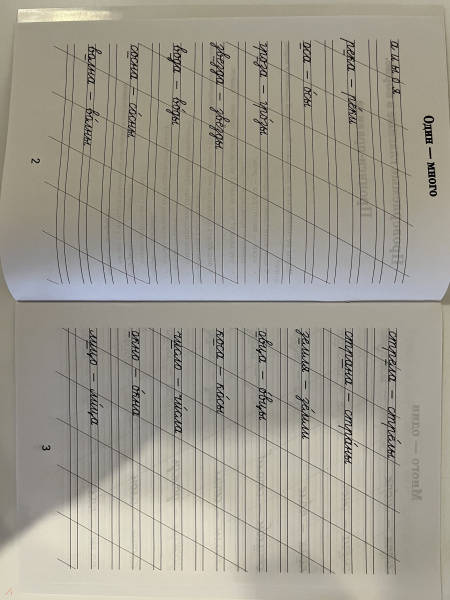 Один — много
река – ре́ки
оса – о́сы
гроза – гро́зы
звезда – звёзды
вода – во́ды
сосна – со́сны
волна – во́лны
2
стрела – стре́лы
страна – стра́ны
земля – зе́мли
овца – о́вцы
коса – ко́сы
число – чи́сла
окно – о́кна
лицо – ли́ца
3